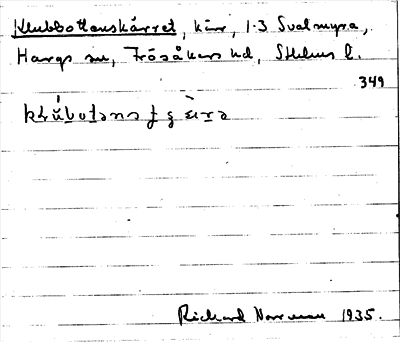 Klubbottenskärret, kärr, 1-3 Svalmyra,
Hargs sn, Frösåkers hd, Sthlms l.
349
Richard Norrman 1935.